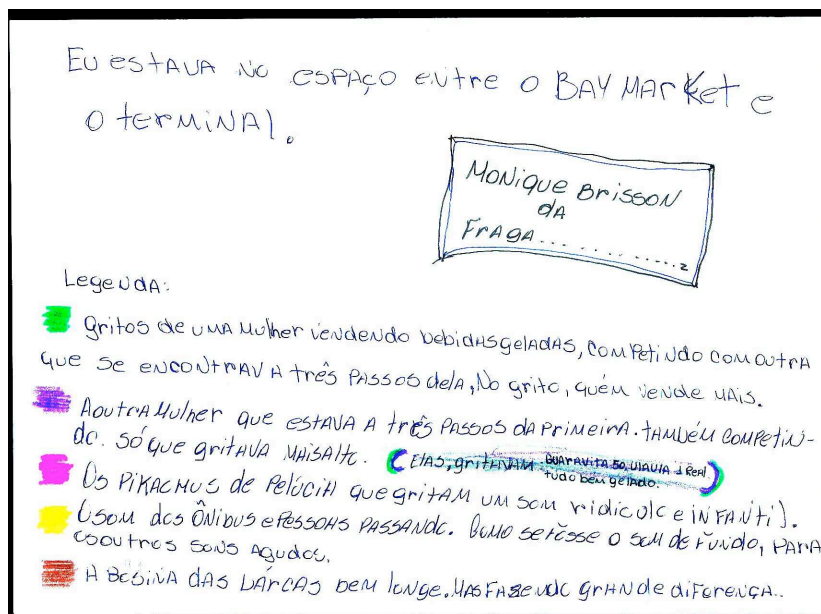 Eu estava no espaço entre o Bay Market e
o terminal.
Monique Brisson
da
Fraga............2
Legenda:
Gritos de uma mulher vendendo bebidas geladas, competindo com outra
que se encontrava a três passos dela, no grito, quem vende mais.
A outra mulher que estava a três passos da primeira. Também competin-
do. Só que gritava mais alto. (Elas, gritavam: Guaravita 50, 1 Real.
tudo bem gelado.)
Os Pikachus de pelúcia que gritam um som ridículo e infantil.
O som dos ônibus e pessoas passando. Como se fosse o som de fundo, para
os outros sons agudos.
A besina das barcas bem longe. Mas fazendo grande diferença..